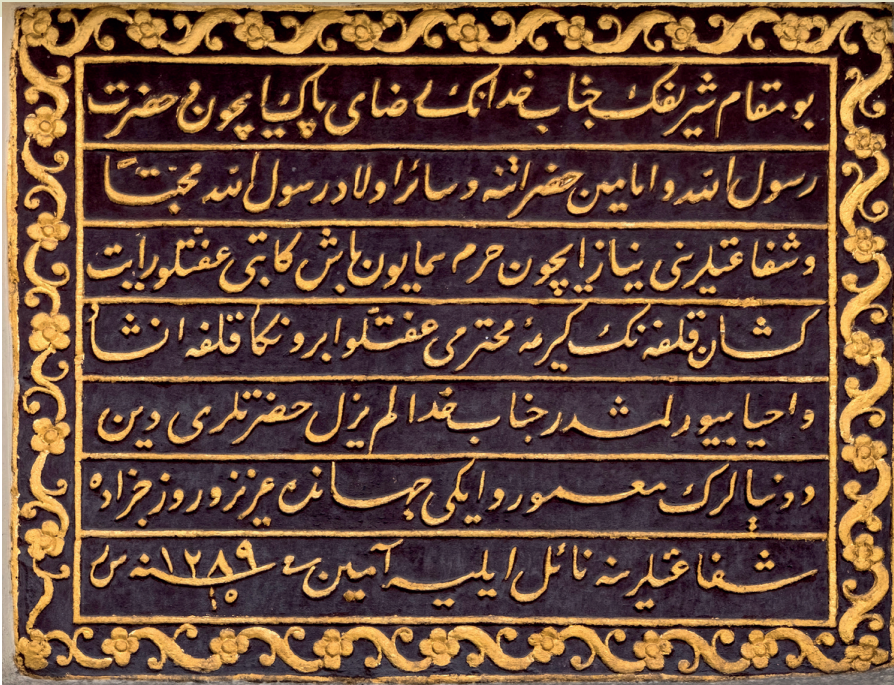 بو مقام شريفك جناب خدانك رضاى پاكى ايچون و حضرت
رسول الله و امامين حضراتنه و سائر اولاد رسول الله محبتاً
و شفاعتيلرنى نياز ايچون حرم همايون باش كاتبى عفتلو رايت
كشان قلفه نك كيرمهٔ محترمى عفتلو ابرونكا قلفه انشاد
و احيا بيورلمشدر جناب خدا لم يزل حضرتلرى دين
و دنيالرك معمور و ايكى جهانده عزيز و روز جزاده
شفاعتيلرينه نائل ايليه آمين سنه ١٢٨٩